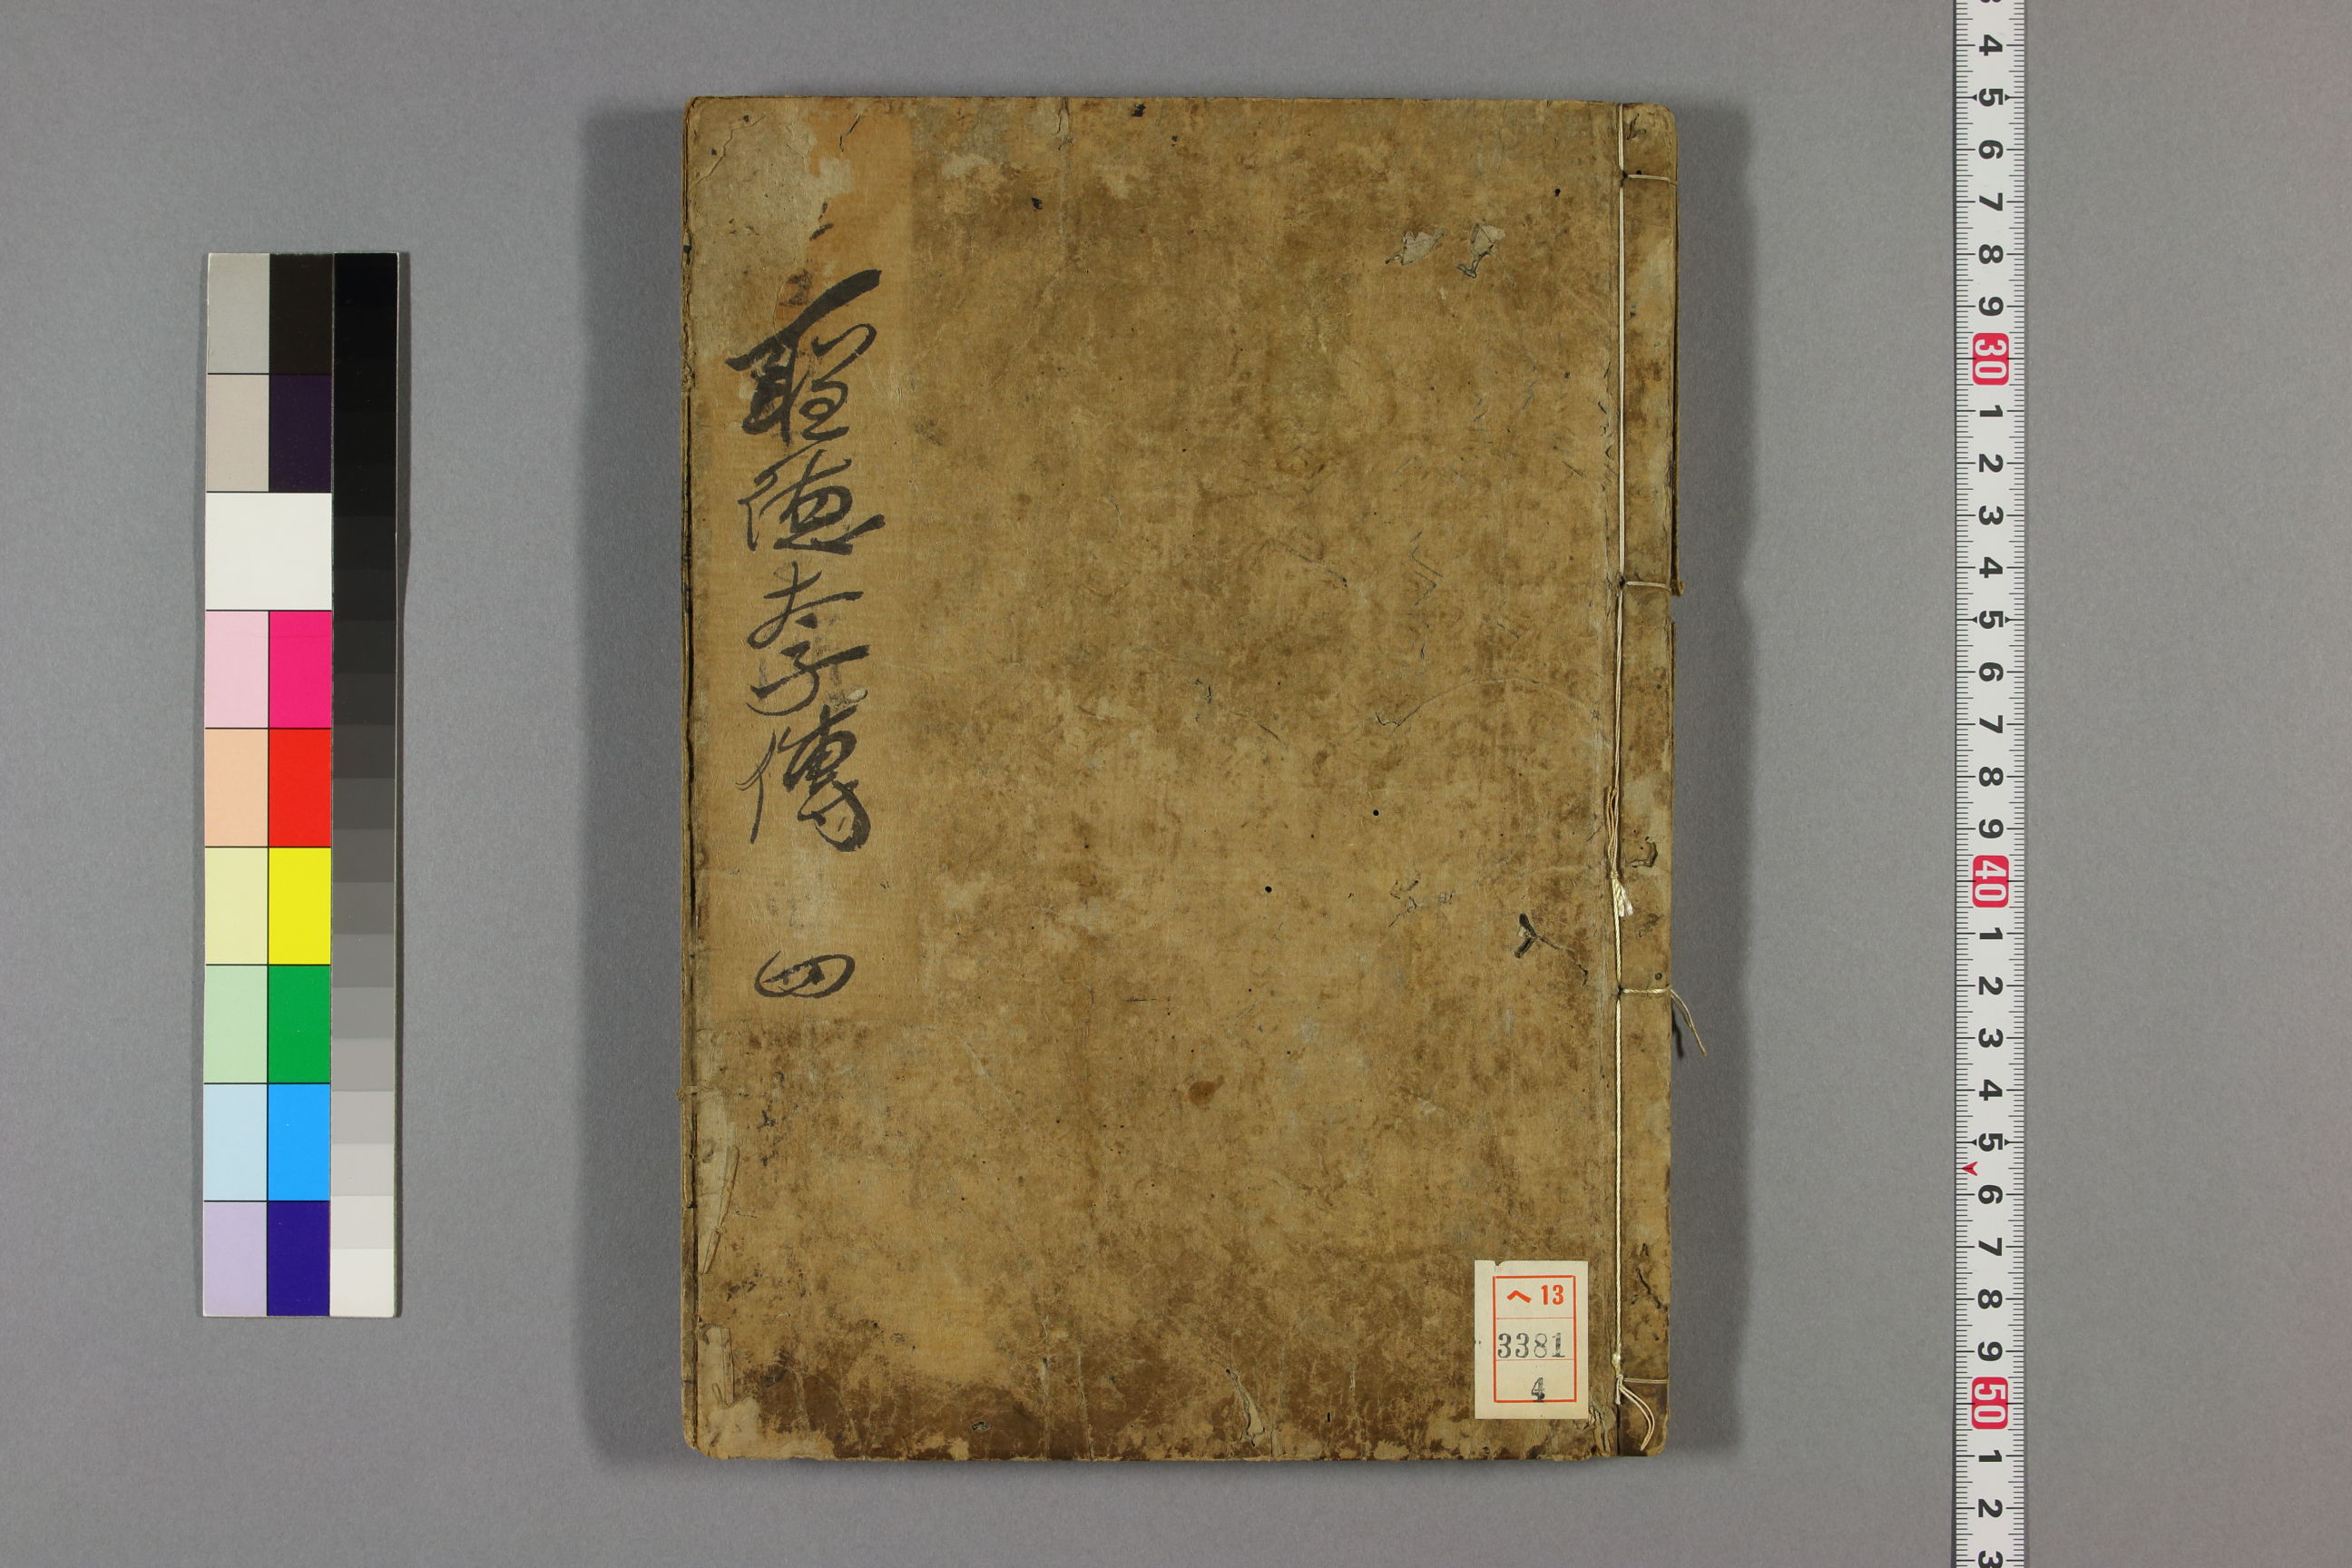 聖徳太子傳 四
へ 13
3381
4
3
4
5
6
7
8
9
30
1
2
3
4
5
6
7
8
9
40
1
2
3
4
5
6
7
8
9
50
1
2
3